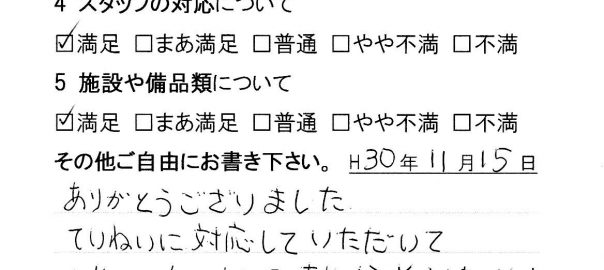 4 スタッフの対応について
☑満足 □まあ満足 □普通 □やや不満 □不満
5 施設や備品類について
☑満足 □まあ満足 □普通 □やや不満 □不満
その他ご自由にお書き下さい。 H30年11月15日
ありがとうございました
ていねいに対応していただいて